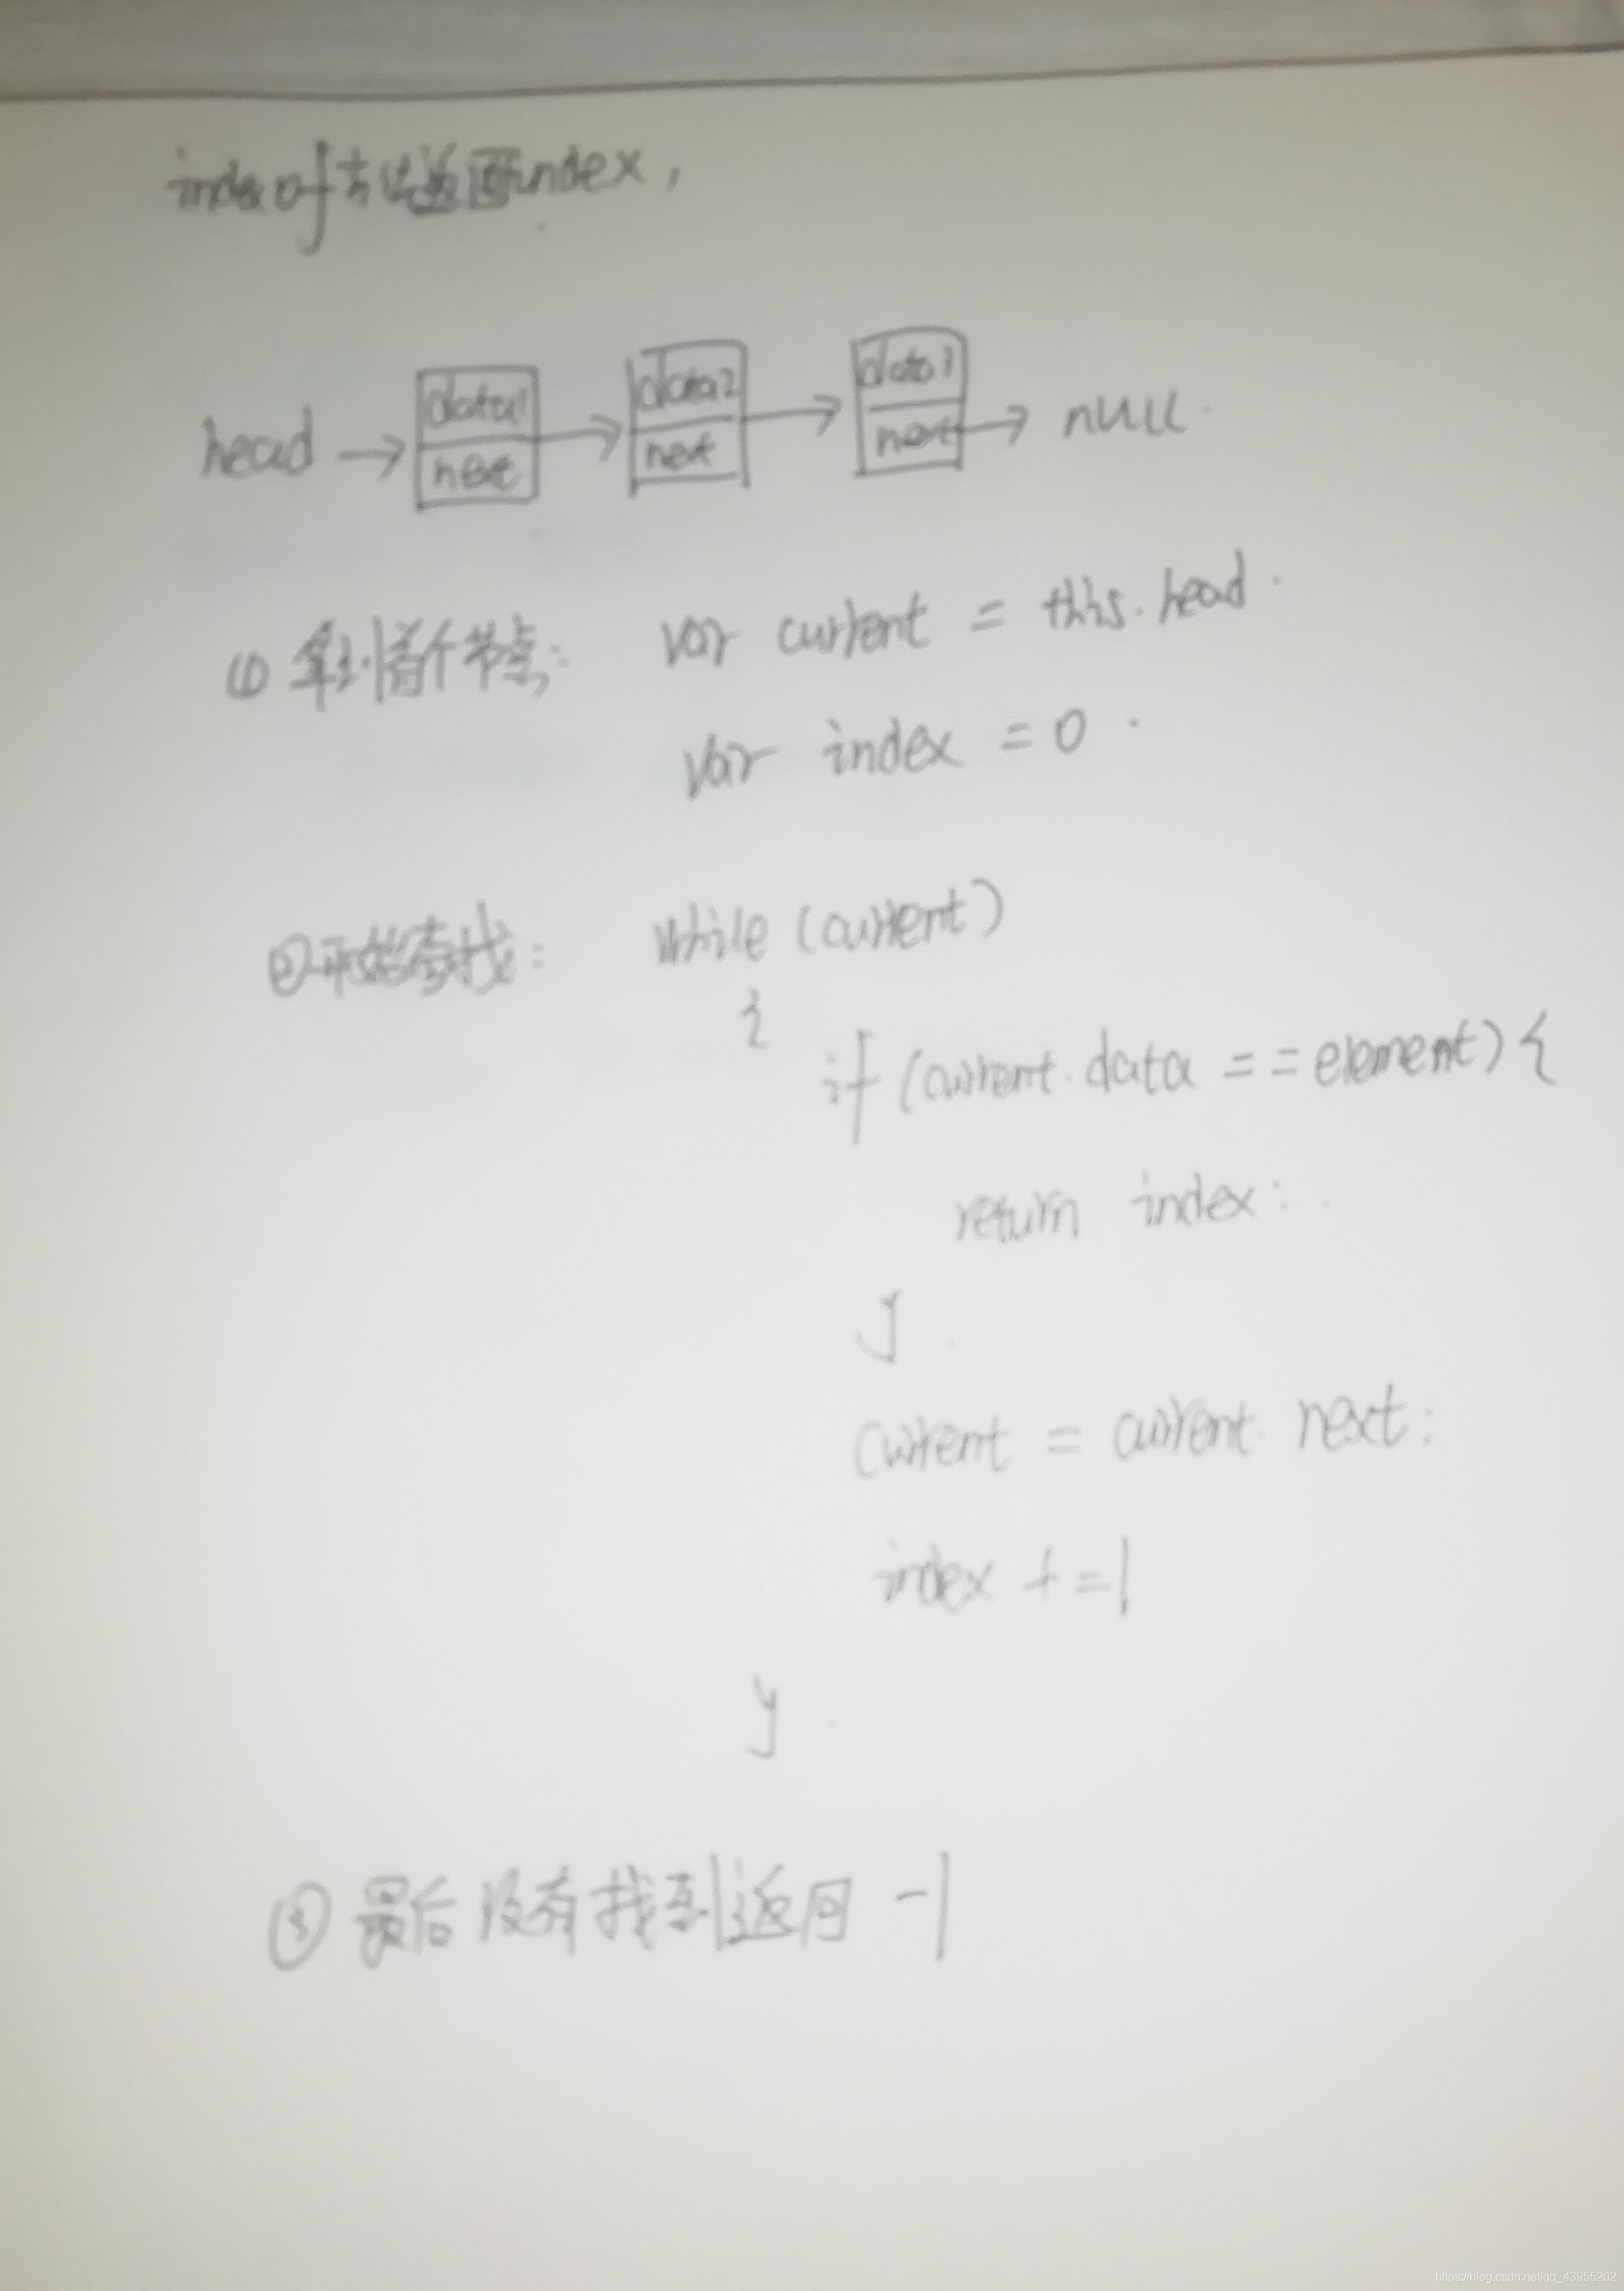 indexof方法返回index,
data1 data2 data1
head → next → next → next → null.
① 拿到首个节点: var current = this.head.
var index = 0.
②开始查找: while (current)
{
if (current.data == element) {
return index;
}
current = current.next;
index += 1
}
③ 最后没有找到返回 -1
https://blog.csdn.net/qq_43955202